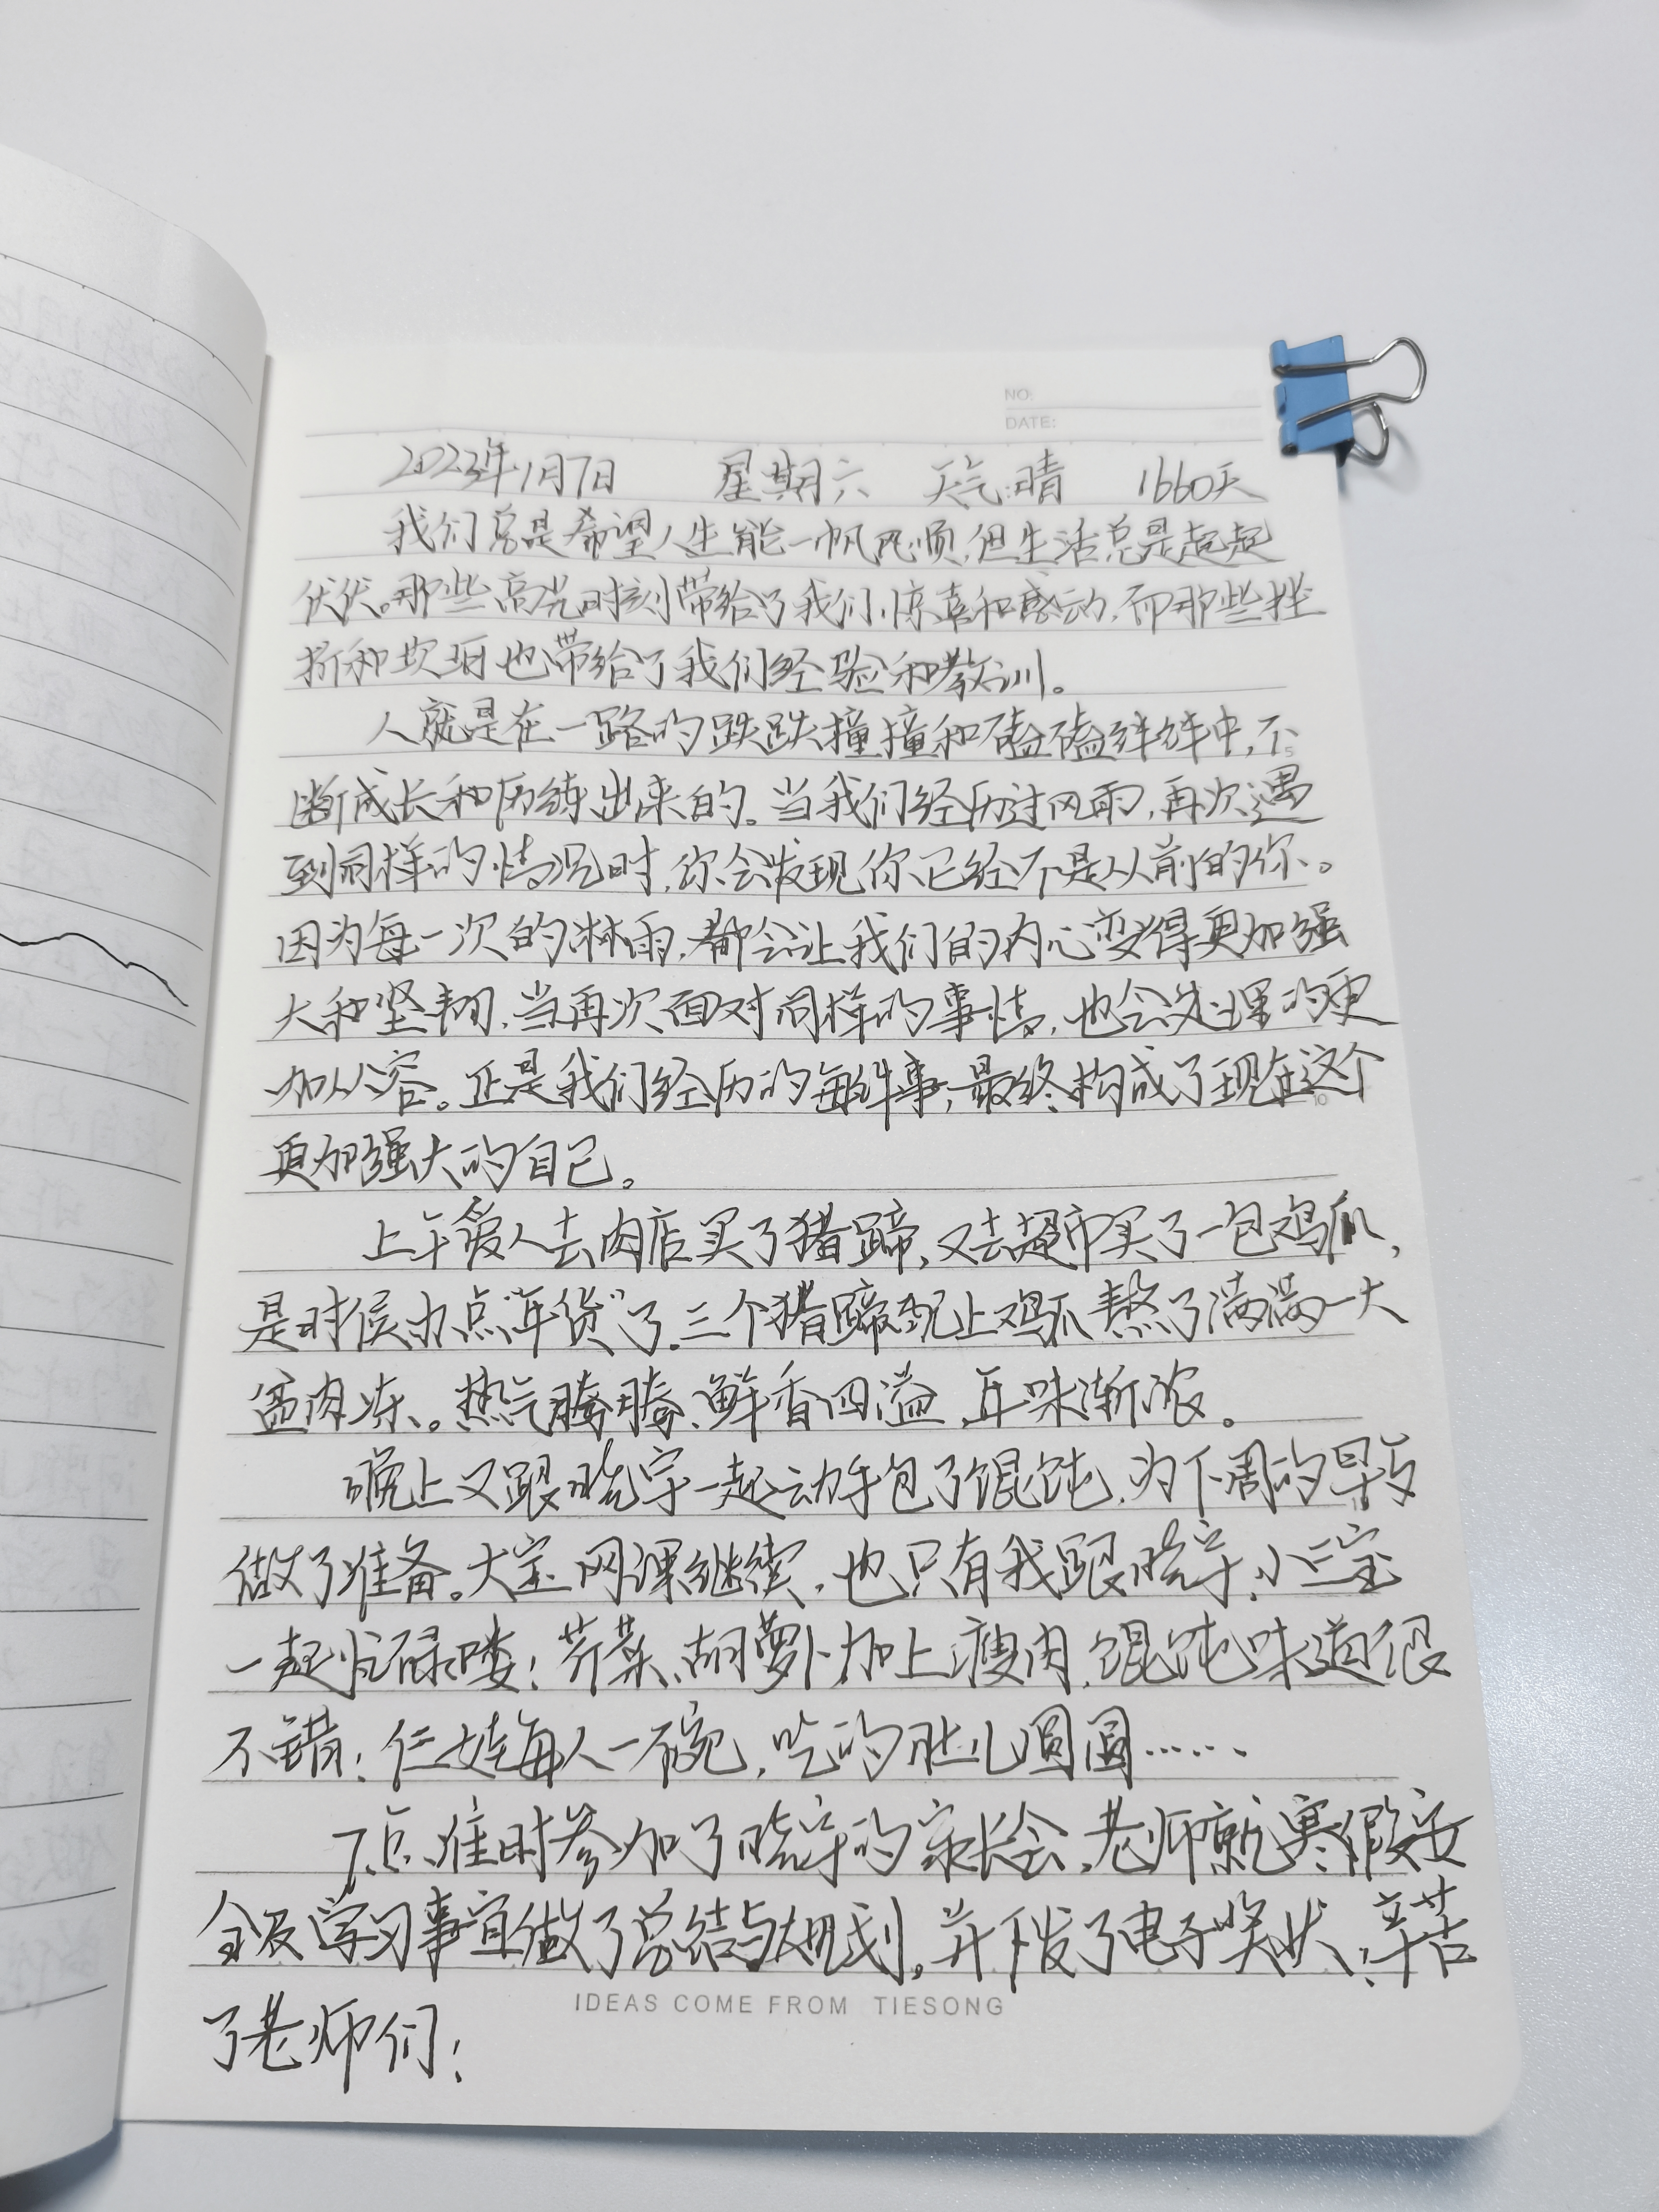 NO:
DATE:
2023年1月7日 星期六 天气:晴 1660天
我们总是希望人生能一帆风顺,但生活总是起起
伏伏。那些高光时刻带给了我们惊喜和感动,而那些挫
折和坎坷也带给了我们经验和教训。
人就是在一路的跌跌撞撞和磕磕绊绊中,不
断成长和历练出来的。当我们经历过风雨,再次遇
到同样的情况时,你会发现你已经不是从前的你。
因为每一次的淋雨,都会让我们的内心变得更加强
大和坚韧,当再次面对同样的事情,也会处理的更
加从容。正是我们经历的每件事,最终构成了现在这个
更加强大的自己。
上午爱人去肉店买了猪蹄,又去超市买了一包鸡爪,
是时候办点“年货”了。三个猪蹄配上鸡爪熬了满满一大
盆肉冻。热气腾腾、鲜香四溢,年味渐浓。
晚上又跟晓宇一起动手包了馄饨,为下周的早歺
做了准备。大宝网课继续,也只有我跟晓宇、小三宝
一起忙碌喽!芹菜、胡萝卜加上瘦肉,馄饨味道很
不错!仨娃每人一碗,吃的肚儿圆圆……
7点准时参加了晓宇的家长会,老师就寒假安
全及学习事宜做了总结与规划,并下发了电子奖状!辛苦
了老师们!
IDEAS COME FROM TIESONG